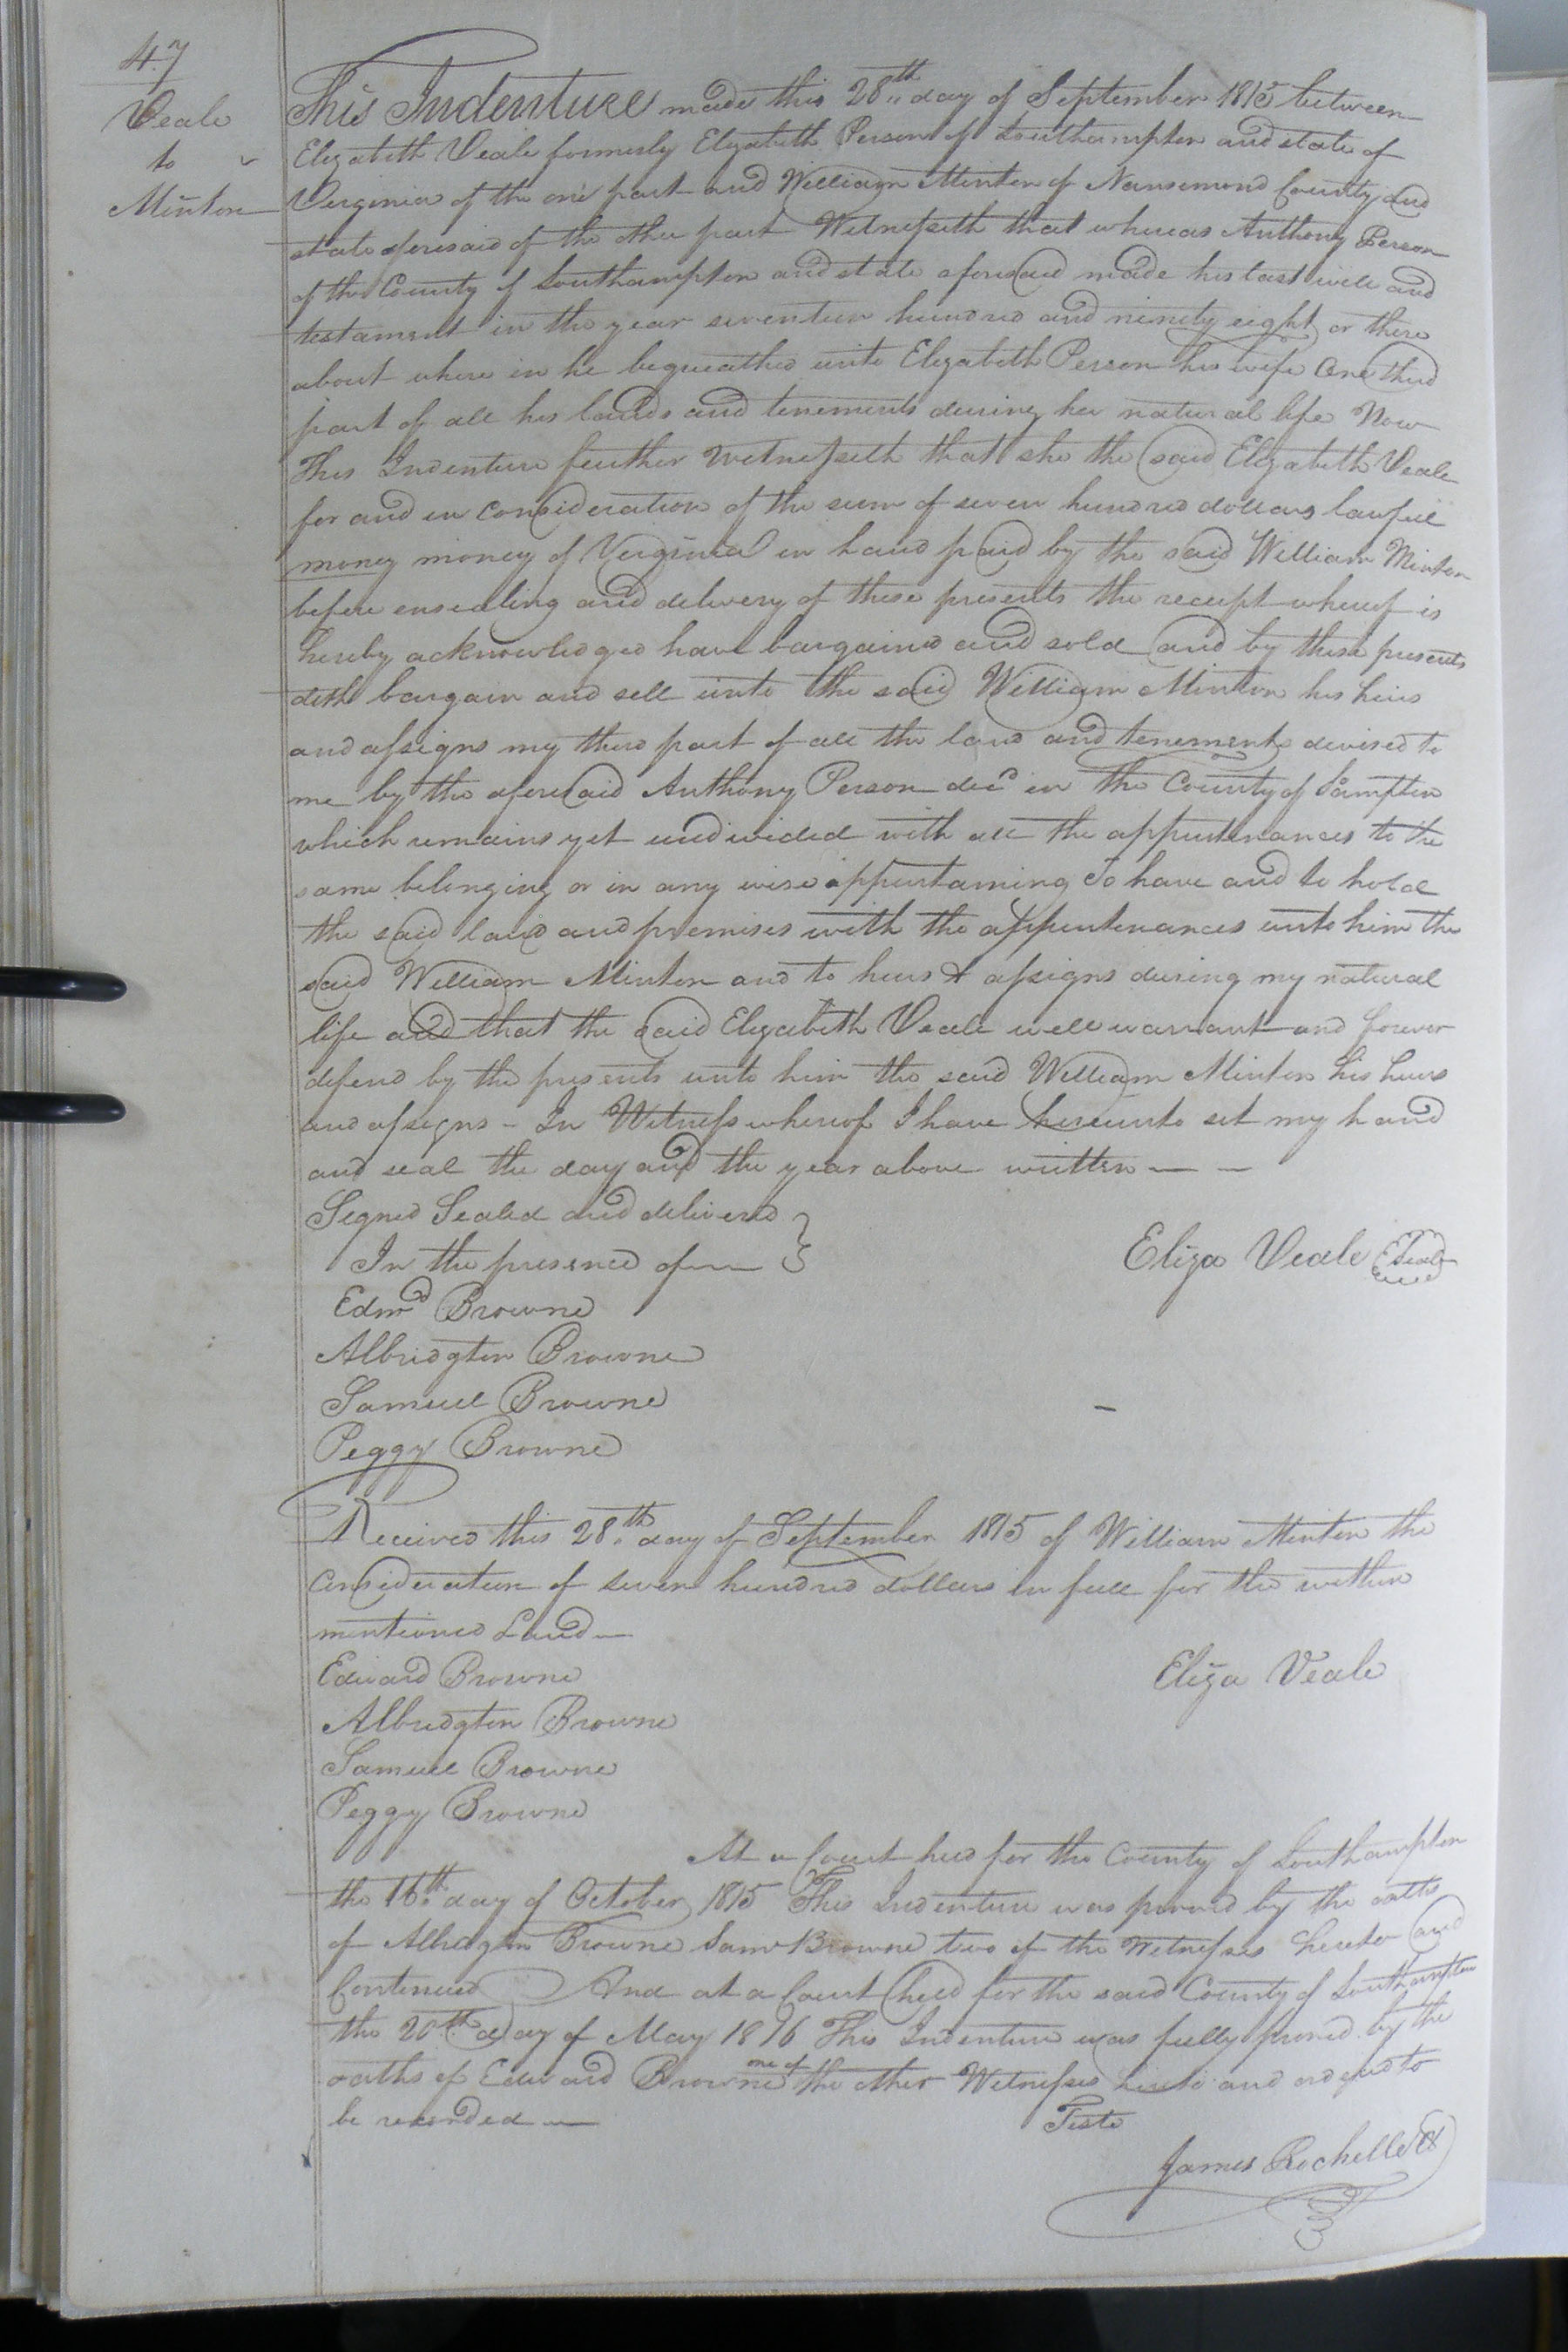 47
Veale
to
Minton
This Indenture made this 28th day of September 1815 between
Elizabeth Veale formerly Elizabeth Person of Southampton and state of
Virginia of the one part and William Minton of Nansemond County and
state aforesaid of the other part Witnesseth that whereas Anthony Person
of the County of Southampton and state aforesaid made his last will and
testament in the year seventeen hundred and ninety eight or there
about where in he bequeathed unto Elizabeth Person his wife one third
part of all his lands and tenements during her natural life Now
This Indenture further Witnesseth that she the said Elizabeth Veale
for and in consideration of the sum of seven hundred dollars lawfull
money money of Virginia in hand paid by the said William Minton
before ensealing and delivery of these presents the receipt whereof is
hereby acknowledged have bargained and sold and by these presents
doth bargain and sell unto the said William Minton his heirs
and assigns my third part of all the land and tenements devised to
me by the aforesaid Anthony Person decd in the County of Sampton
which remains yet undivided with all the appurtenances to the
same belonging or in any wise appurtaining To have and to hold
the said land and premises with the appurtenances unto him the
said William Minton and to heirs & assigns during my natural
life and that the said Elizabeth Veale will warrant and forever
defend by the presents unto him the said William Minton his heirs
and assigns - In Witness whereof I have hereunto set my hand
and seal the day and the year above written — —
Signed Sealed and delivered
In the presence of —
Eliza Veale Seal
Edmd Browne
Albridgton Browne
Samuel Browne
Peggy Browne
Received this 28th day of September 1815 of William Minton the
Consideration of seven hundred dollars in full for the within
mentioned Land —
Edward Browne
Eliza Veale
Albridgton Browne
Samuel Browne
Peggy Browne
At a Court held for the County of Southampton
the 16th day of October 1815 This Indenture was proved by the oaths
of Albridgton Browne Saml Browne two of the Witnesses hereto and
Continued And at a Court held for the said County of Southampton
the 20th day of May 1816 This Indenture was fully proved by the
oaths of Edward Browne one of the other Witnesses hereto and ordered to
be recorded —
Teste
James Rochelle Cl